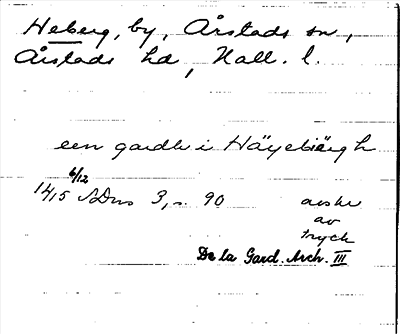 Heberg, by, Årstads sn,
Årstads hd, Hall. l.
een gardh i Häyebiärgh
6/12
1415 SDns 3, s. 90
avskr
av
tryck
De la Gard. Arch. III